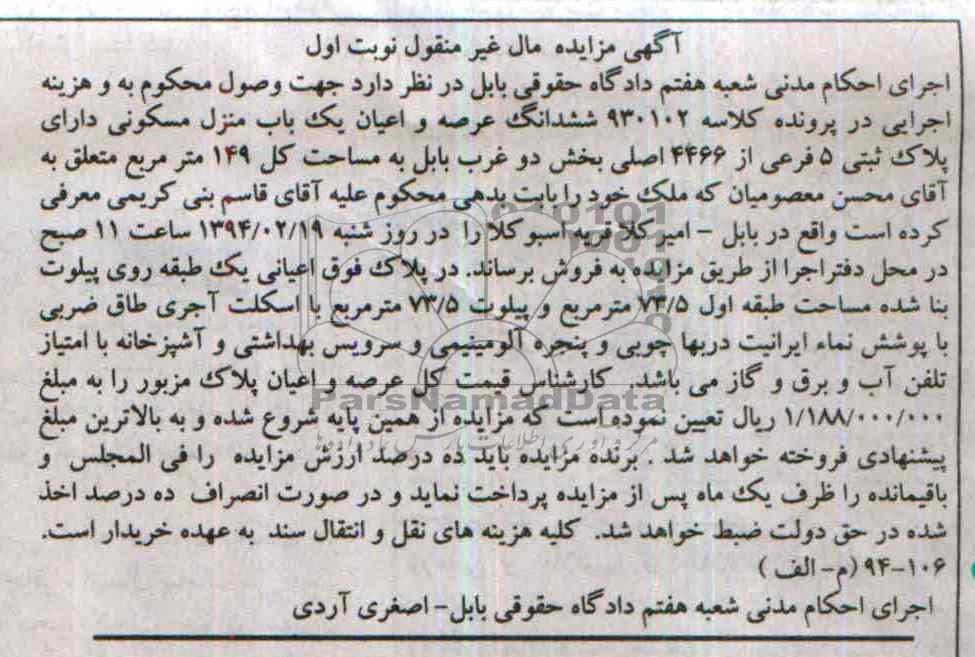 آگهی مزایده مال غیر منقول نوبت اول
اجرای احکام مدنی شعبه هفتم دادگاه حقوقی بابل در نظر دارد جهت وصول محکوم به و هزینه
اجرایی در پرونده کلاسه ۹۳۰۱۰۲ ششدانگ عرصه و اعیان یک باب منزل مسکونی دارای
پلاک ثبتی ۵ فرعی از ۴۴۶۶ اصلی بخش دو غرب بابل به مساحت کل ۱۴۹ متر مربع متعلق به
آقای محسن معصومیان که ملک خود را بابت بدهی محکوم علیه آقای قاسم بنی کریمی معرفی
کرده است واقع در بابل - امیرکلا قریه اسبوکلا را در روز شنبه ۱۳۹۴/۰۲/۱۹ ساعت ۱۱ صبح
در محل دفتر اجرا از طریق مزایده به فروش برساند. در پلاک فوق اعیانی یک طبقه روی پیلوت
بنا شده مساحت طبقه اول ۷۳/۵ مترمربع و پیلوت ۷۳/۵ مترمربع با اسکلت آجری طاق ضربی
با پوشش نماء ایرانیت دربها چوبی و پنجره آلومینیمی و سرویس بهداشتی و آشپزخانه با امتیاز
تلفن آب و برق و گاز می باشد. کارشناس قیمت کل عرصه و اعیان پلاک مزبور را به مبلغ
۱/۱۸۸/۰۰۰/۰۰۰ ریال تعیین نموده است که مزایده از همین پایه شروع شده و به بالاترین مبلغ
پیشنهادی فروخته خواهد شد . برنده مزایده باید ده درصد ارزش مزایده را فی المجلس و
باقیمانده را ظرف یک ماه پس از مزایده پرداخت نماید و در صورت انصراف ده درصد اخذ
شده در حق دولت ضبط خواهد شد. کلیه هزینه های نقل و انتقال سند به عهده خریدار است.
۹۴-۱۰۶ (م- الف )
اجرای احکام مدنی شعبه هفتم دادگاه حقوقی بابل- اصغری آردی
ParsNamadData